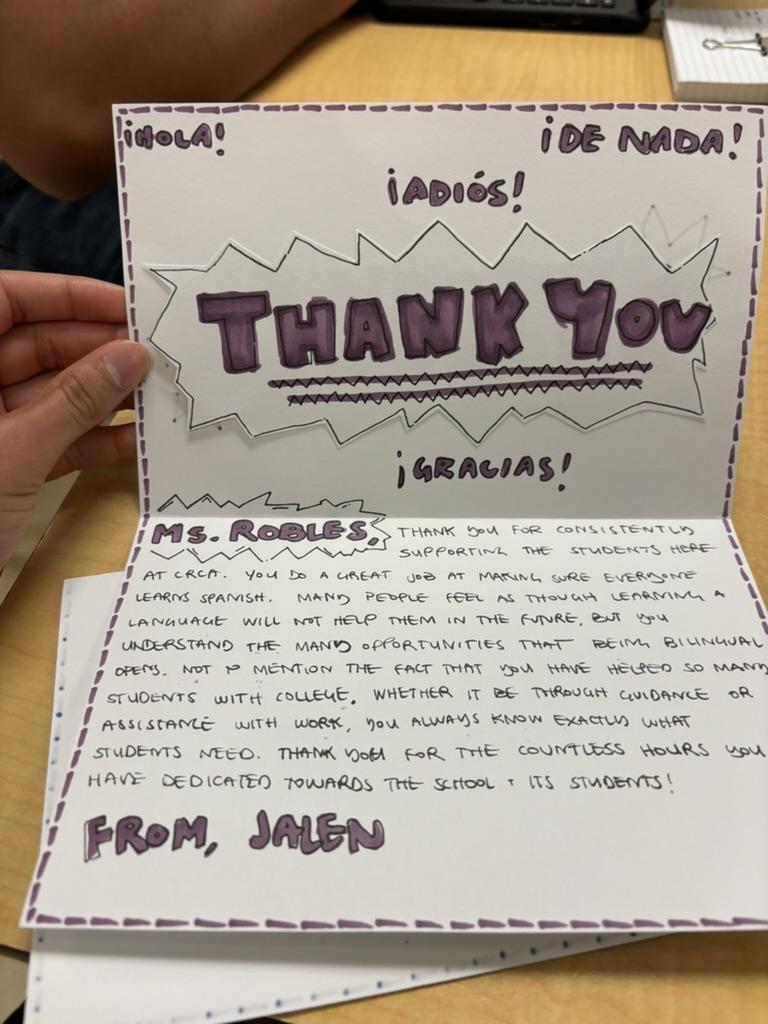 ¡HOLA!
¡DE NADA!
¡ADIÓS!
THANK YOU
¡GRACIAS!
MS. ROBLES, THANK YOU FOR CONSISTENTLY
SUPPORTING THE STUDENTS HERE
AT CRCA. YOU DO A GREAT JOB AT MAKING SURE EVERYONE
LEARNS SPANISH. MANY PEOPLE FEEL AS THOUGH LEARNING A
LANGUAGE WILL NOT HELP THEM IN THE FUTURE, BUT YOU
UNDERSTAND THE MANY OPPORTUNITIES THAT BEING BILINGUAL
OPENS. NOT TO MENTION THE FACT THAT YOU HAVE HELPED SO MANY
STUDENTS WITH COLLEGE. WHETHER IT BE THROUGH GUIDANCE OR
ASSISTANCE WITH WORK, YOU ALWAYS KNOW EXACTLY WHAT
STUDENTS NEED. THANK YOU FOR THE COUNTLESS HOURS YOU
HAVE DEDICATED TOWARDS THE SCHOOL + ITS STUDENTS!
FROM, JALEN